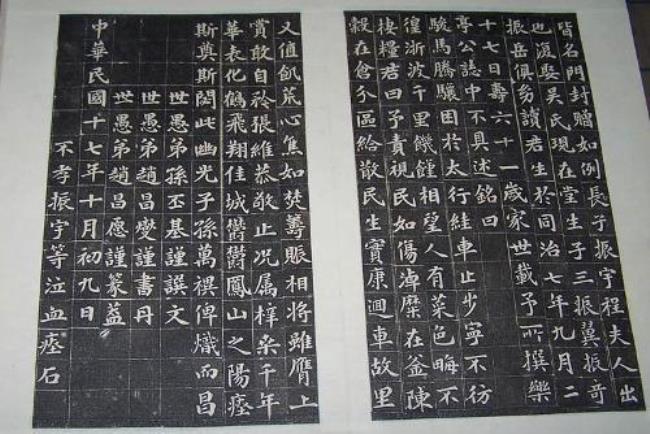 皆名門封贈如例長子振宇程夫人出
也復娶吳氏現在堂生子三振翼振奇
振岳俱幼讀君生於同治七年九月二
十七日壽六十一歲家世載予所撰樂
亭公誌中不具述銘曰
駿馬騰驤困於太行絓車止步寧不彷
徨浙波千里饑饉相望人有菜色晦不
接糧君曰予責視民如傷淖糜在釜陳
穀在倉分區給散民生實康迴車故里
又值飢荒心焦如焚籌賑相將雖膺上
賞敢自矜張維恭敬止況属梓桒千年
華表化鶴飛翔佳城鬱鬱鳳山之陽瘞
斯奠斯閟此幽光子孫萬禩俾熾而昌
世愚弟孫丕基謹譔文
世愚弟趙昌燮謹書丹
世愚弟趙昌愿謹篆葢
中華民國十七年十月初九日
不孝振宇等泣血瘞石